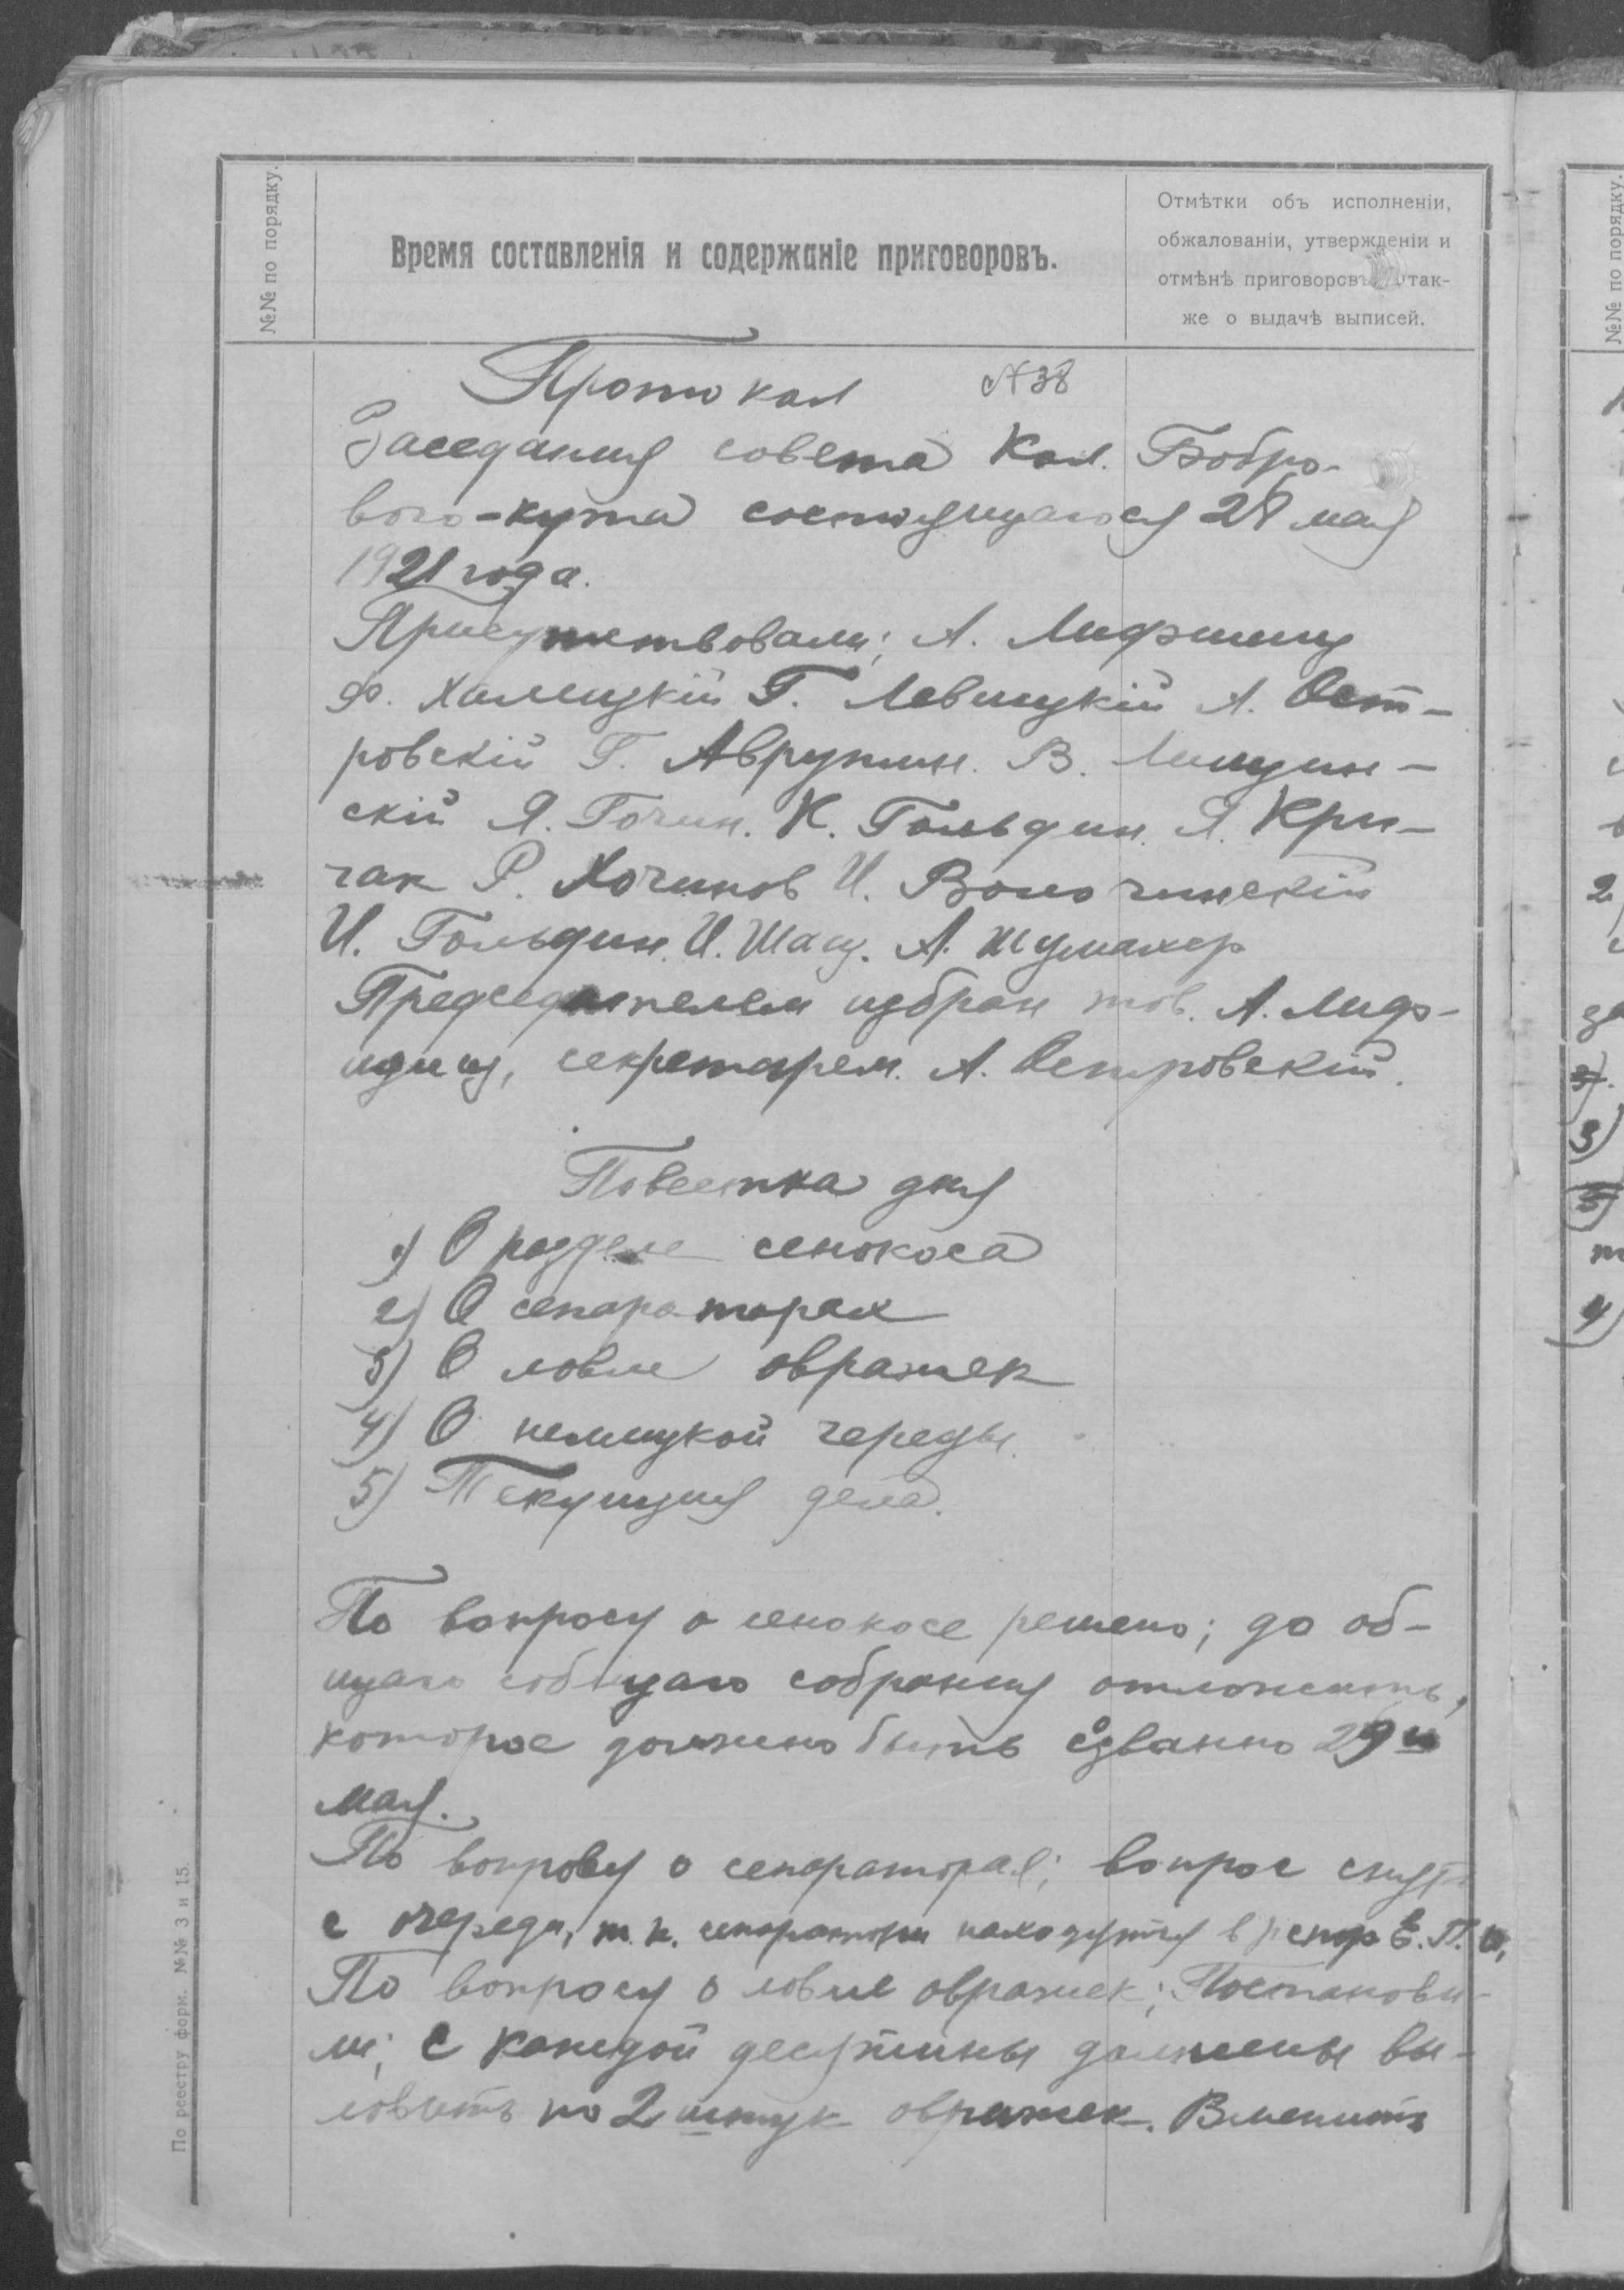 №№ по порядку.
Время составленія и содержаніе приговоровъ.
Отмѣтки объ исполненіи,
обжалованіи, утвержденіи и
отмѣнѣ приговоровъ, а так-
же о выдачѣ выписей.
Протокал №38
Заседания совета Кол. Бобро-
вого-кута состоящагося 28 мая
1921 года.
Присутствовали; А. Лифшиц
Ф. Халецкій Г. Левицкій А. Ост-
ровскій Г. Аврутин. В.
скій Я. Гочин. К. Гольдин. Я. Кри-
чак Р. Хочинов И. Воло чинскій
И. Гольдин. И. Шац. А. Шумахер
Председателем избран тов. А. Лиф-
шиц, секретарем. А. Островскій.
Повестка дня
1) О разделе сенокоса
2) О сепараторах
3) О ловле овражек
4) О немецкой череды.
5) Текущия дела.
По вопросу о сенокосе решено; до об-
щаго собрания отложить,
которое должно быть созванно 29 го
мая.
По вопросу о сепараторах; вопрос снят
с очереди, т. к. сепараторы находятся в
По вопросу о ловле овражек; Постанови-
ли; с каждой десятины должены вы-
ловить по 2 штук овражек. Вменить
По реестру форм. №№ 3 и 15.
№№ по порядку.
2
3)
4)